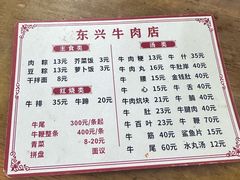 东兴牛肉店
主食类
肉粽 13元 芥菜饭 3元
豆粽 13元 萝卜饭 3元
干拌面 8元
红烧类
牛排 35元 牛蹄 20元
牛尾 300元/条起
牛鞭整条 400元/条
青菜 8-20元
拼盘 面议
汤类
牛肉粳 13元 牛什 35元
牛肉丸 16元 牛肚岸 40元
牛腰 15元 金钱肚 40元
牛心 15元 牛舌 40元
牛肉炕块 15元 牛筋 40元
牛肚 21元 牛腿肉 40元
牛百叶 23元 牛鞭 70元
牛筋 40元 鲨鱼片 15元
牛尾 60元 水丸汤 12元